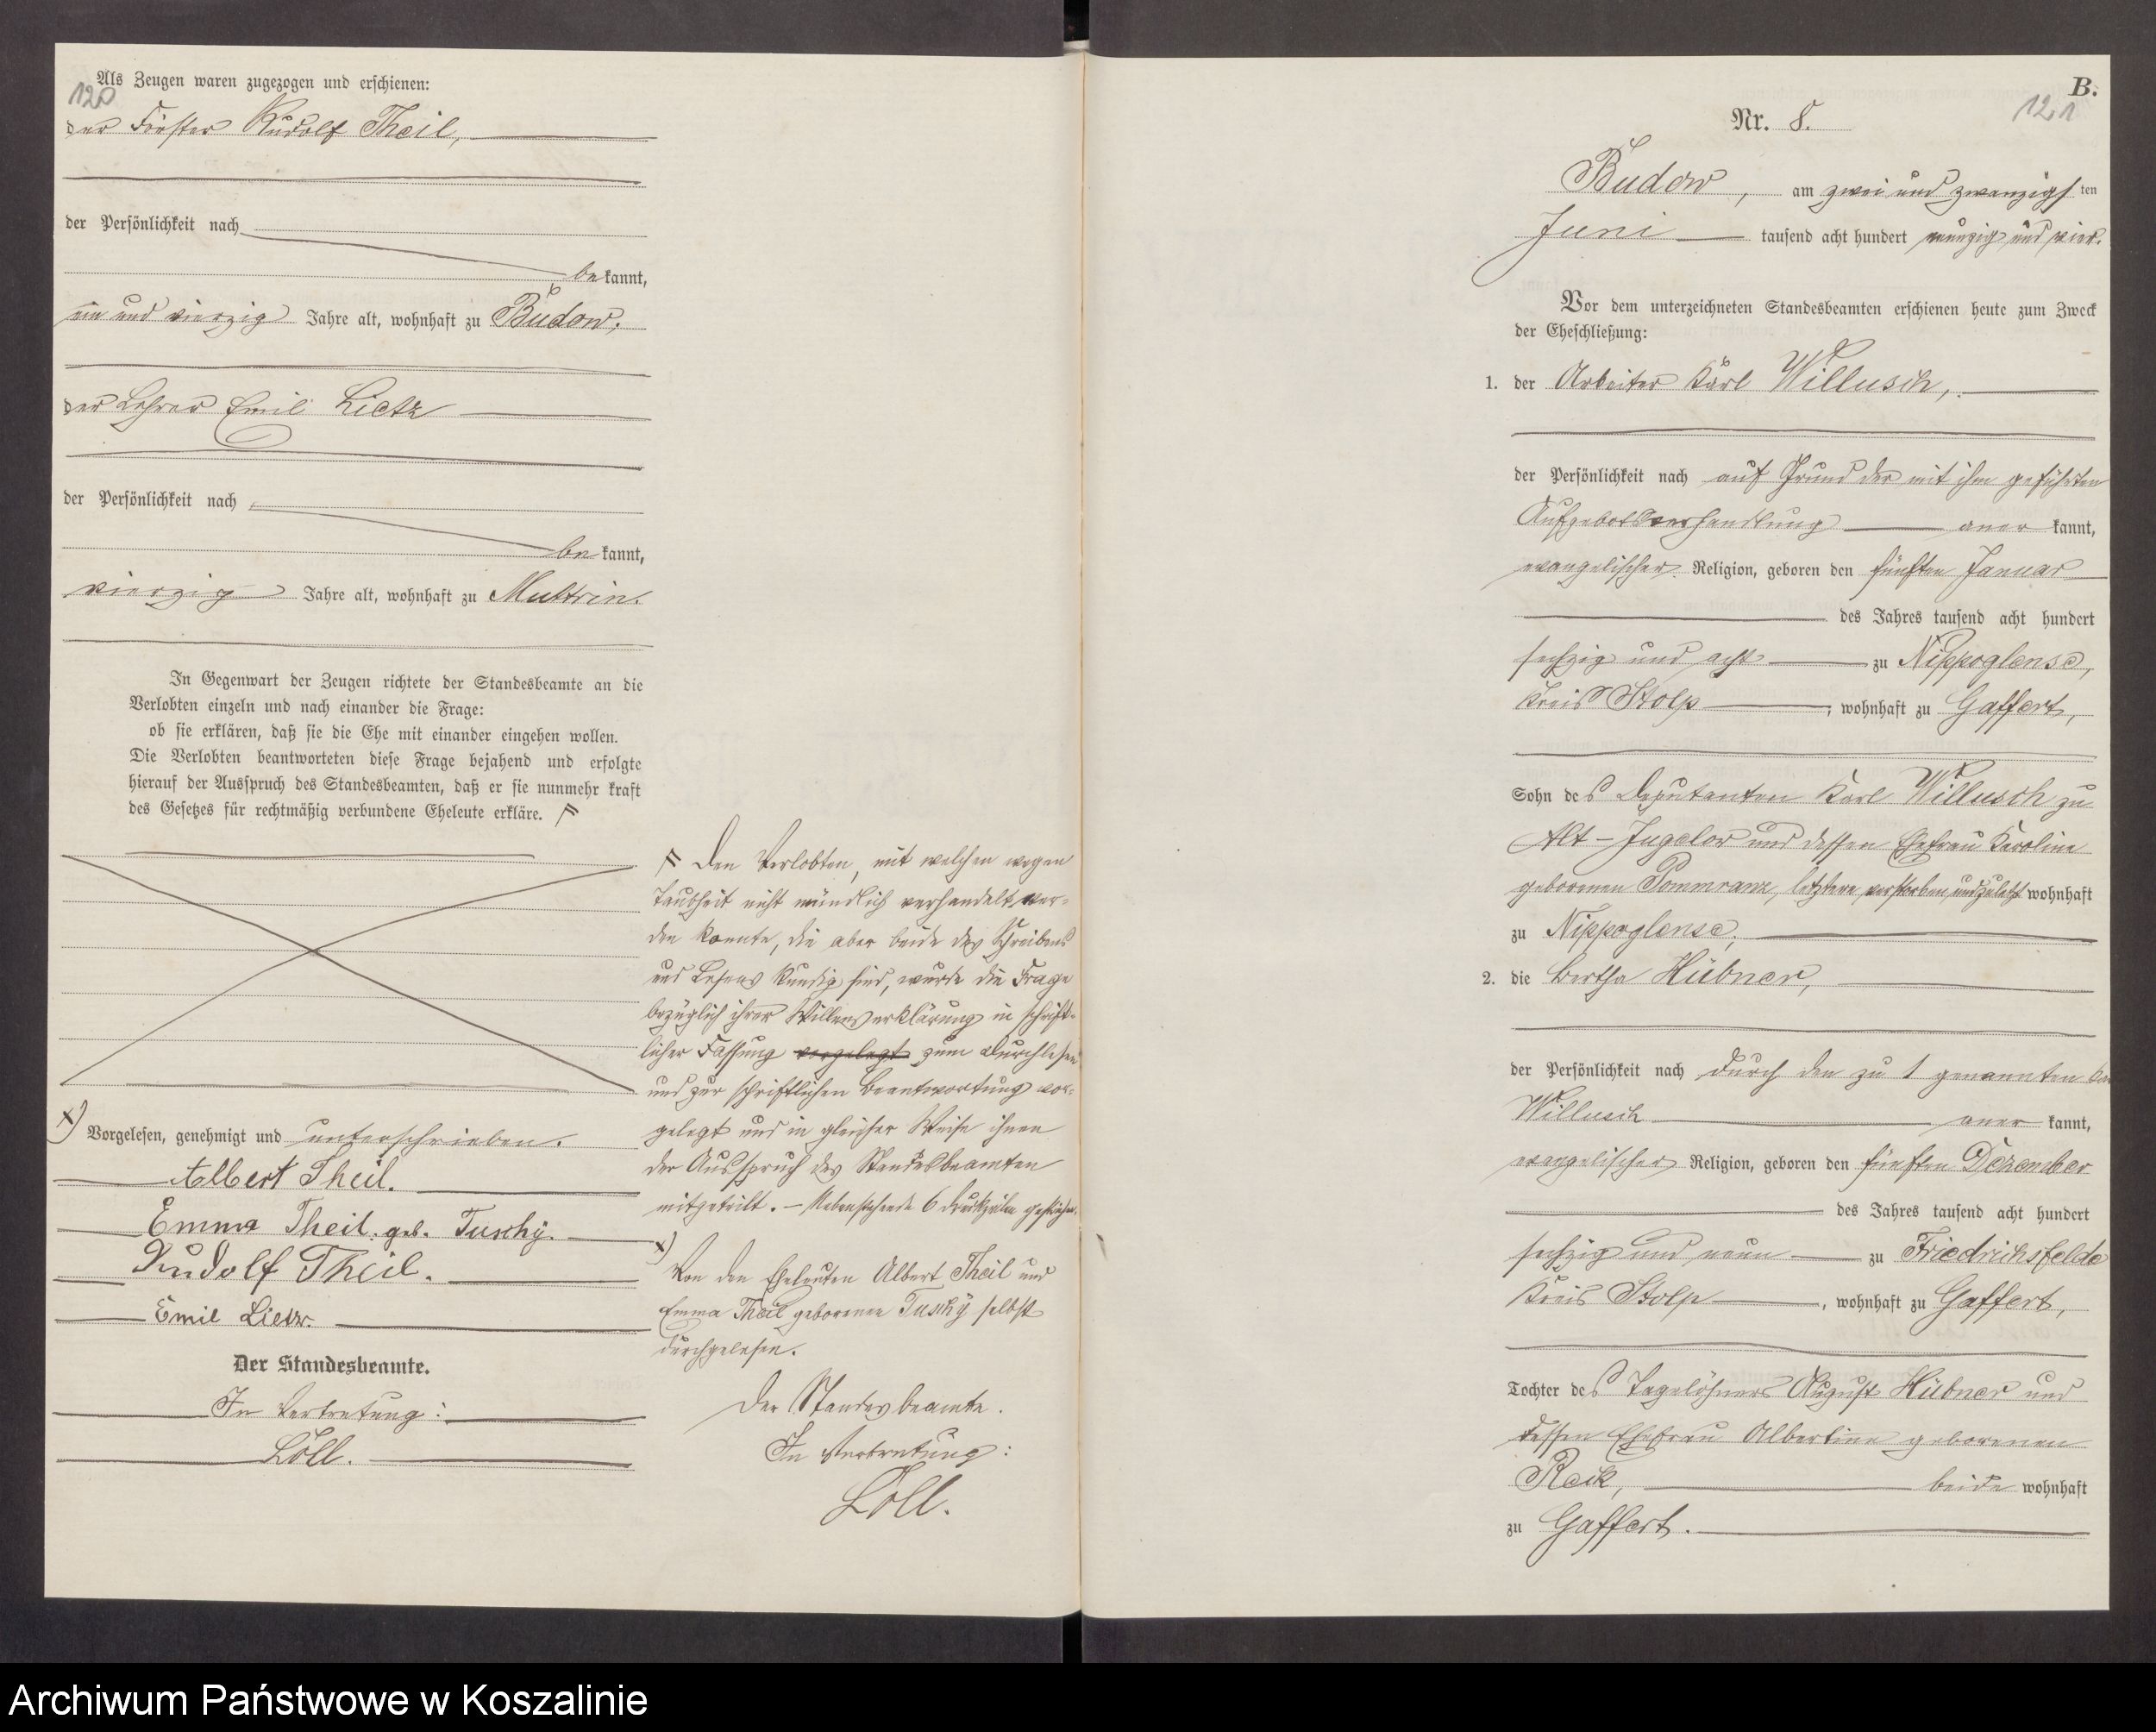 120
Als Zeugen waren zugezogen und erschienen:
der Förster Rudolf Theil,
der Persönlichkeit nach
be kannt,
ein und vierzig Jahre alt, wohnhaft zu Budow;
der Lehrer Emil Lietz
der Persönlichkeit nach
be kannt,
vierzig Jahre alt, wohnhaft zu Muttrin.
In Gegenwart der Zeugen richtete der Standesbeamte an die
Verlobten einzeln und nach einander die Frage:
ob sie erklären, daß sie die Ehe mit einander eingehen wollen.
Die Verlobten beantworteten diese Frage bejahend und erfolgte
hierauf der Ausspruch des Standesbeamten, daß er sie nunmehr kraft
des Gesetzes für rechtmäßig verbundene Eheleute erkläre.
x) Vorgelesen, genehmigt und unterschrieben.
Albert Theil.
Emma Theil. geb. Tuschy.
Rudolf Theil.
Emil Lietz.
Der Standesbeamte.
In Vertretung:
Löll.
Den Verlobten, mit welchen wegen
Taubheit nicht mündlich verhandelt wer-
den konnte, die aber beide des Schreibens
und Lesens kundig sind, wurde die Frage
bezüglich ihrer Willenserklärung in schrift-
licher Fassung vorgelegt zum Durchlesen
und zur schriftlichen Beantwortung vor-
gelegt und in gleicher Weise ihnen
der Ausspruch des Standesbeamten
mitgeteilt. – Nebenstehende 6 Druckzeilen gestrichen.
x)
Von den Eheleuten Albert Theil und
Emma Theil geborenen Tuschy selbst
durchgelesen.
Der Standesbeamte.
In Vertretung:
Löll.
B.
121
Nr. 8.
Budow, am zwei und zwanzigs ten
Juni tausend acht hundert neunzig und vier.
Vor dem unterzeichneten Standesbeamten erschienen heute zum Zweck
der Eheschließung:
1. der Arbeiter Karl Willusch,
der Persönlichkeit nach auf Grund der mit ihm geführten
Aufgebotsverhandlung aner kannt,
evangelischer Religion, geboren den fünften Januar
des Jahres tausend acht hundert
sechzig und acht zu Nippoglense,
Kreis Stolp, wohnhaft zu Gaffert,
Sohn des Deputanten Karl Willusch zu
Alt-Jugelow und dessen Ehefrau Karoline
geborenen Pommranz, letztere verstorben und zuletzt wohnhaft
zu Nippoglense;
2. die Bertha Hübner,
der Persönlichkeit nach durch den zu 1 genannten
Willusch aner kannt,
evangelischer Religion, geboren den fünften Dezember
des Jahres tausend acht hundert
sechzig und neun zu Friedrichsfelde
Kreis Stolp, wohnhaft zu Gaffert,
Tochter des Tagelöhners August Hübner und
dessen Ehefrau Albertine geborenen
Reik, beide wohnhaft
zu Gaffert.
Archiwum Państwowe w Koszalinie